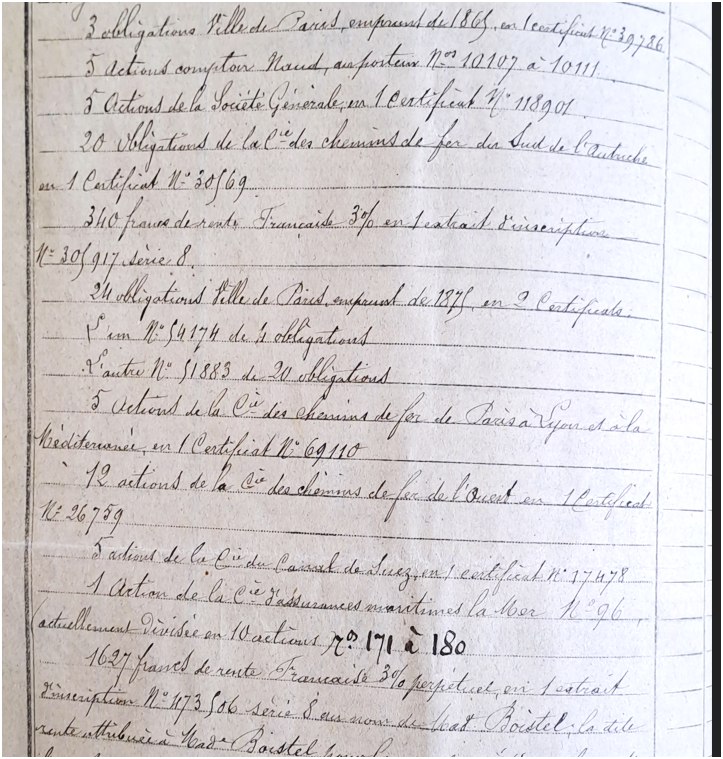 3 obligations Ville de Paris, emprunt de 1865, en 1 certificat N° 39786
5 Actions comptoir Naud, au porteur Nos 10107 à 10111
5 Actions de la Société Générale, en 1 Certificat N° 118901.
20 obligations de la Cie des chemins de fer du Sud de l'Autriche
en 1 Certificat N° 30569
340 francs de rente Française 3% en 1 extrait d'inscription
N° 305917 série 8.
24 obligations Ville de Paris, emprunt de 1875, en 2 Certificats:
L'un N° 54174 de 4 obligations
L'autre N° 51883 de 20 obligations
5 Actions de la Cie des chemins de fer de Paris à Lyon et à la
Méditerranée, en 1 Certificat N° 69110
12 actions de la Cie des chemins de fer de l'Ouest en 1 Certificat
N° 26759
5 actions de la Cie du Canal de Suez, en 1 certificat N° 17478
1 Action de la Cie d'assurances maritimes la Mer N° 96,
actuellement divisée en 10 actions nos 171 à 180
1627 francs de rente Française 3% perpétuel, en 1 extrait
d'inscription N° 473506 série 8 au nom de Made Boistel, la dite
rente attribuée à Made Boistel pour